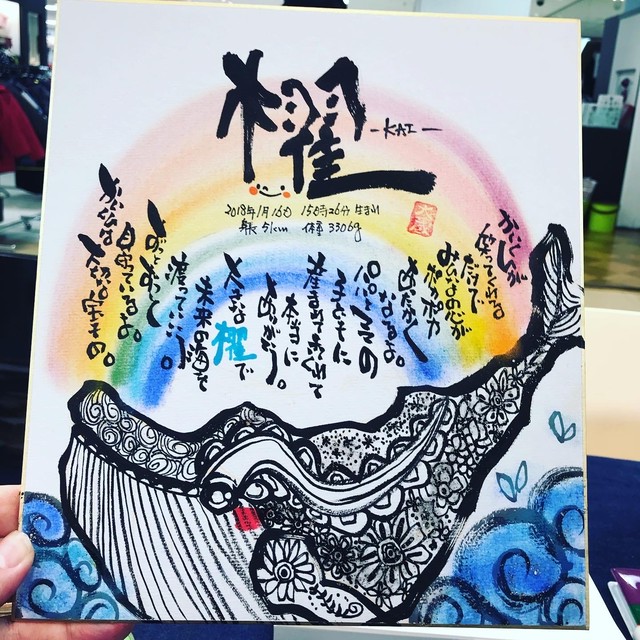 櫂
-KAI-
2018年1月16日 15時26分 生まれ
身長 51cm 体重 3306g
かいくんが
笑ってくれる
だけで
みんなの心が
ポカポカ
あたたかく
なるよ。
パパとママの
子どもに
産まれてきてくれて
本当に
ありがとう。
大きな櫂で
未来の海を
渡っていこう。
ずっとずっと
見守っているよ。
大切な宝もの。